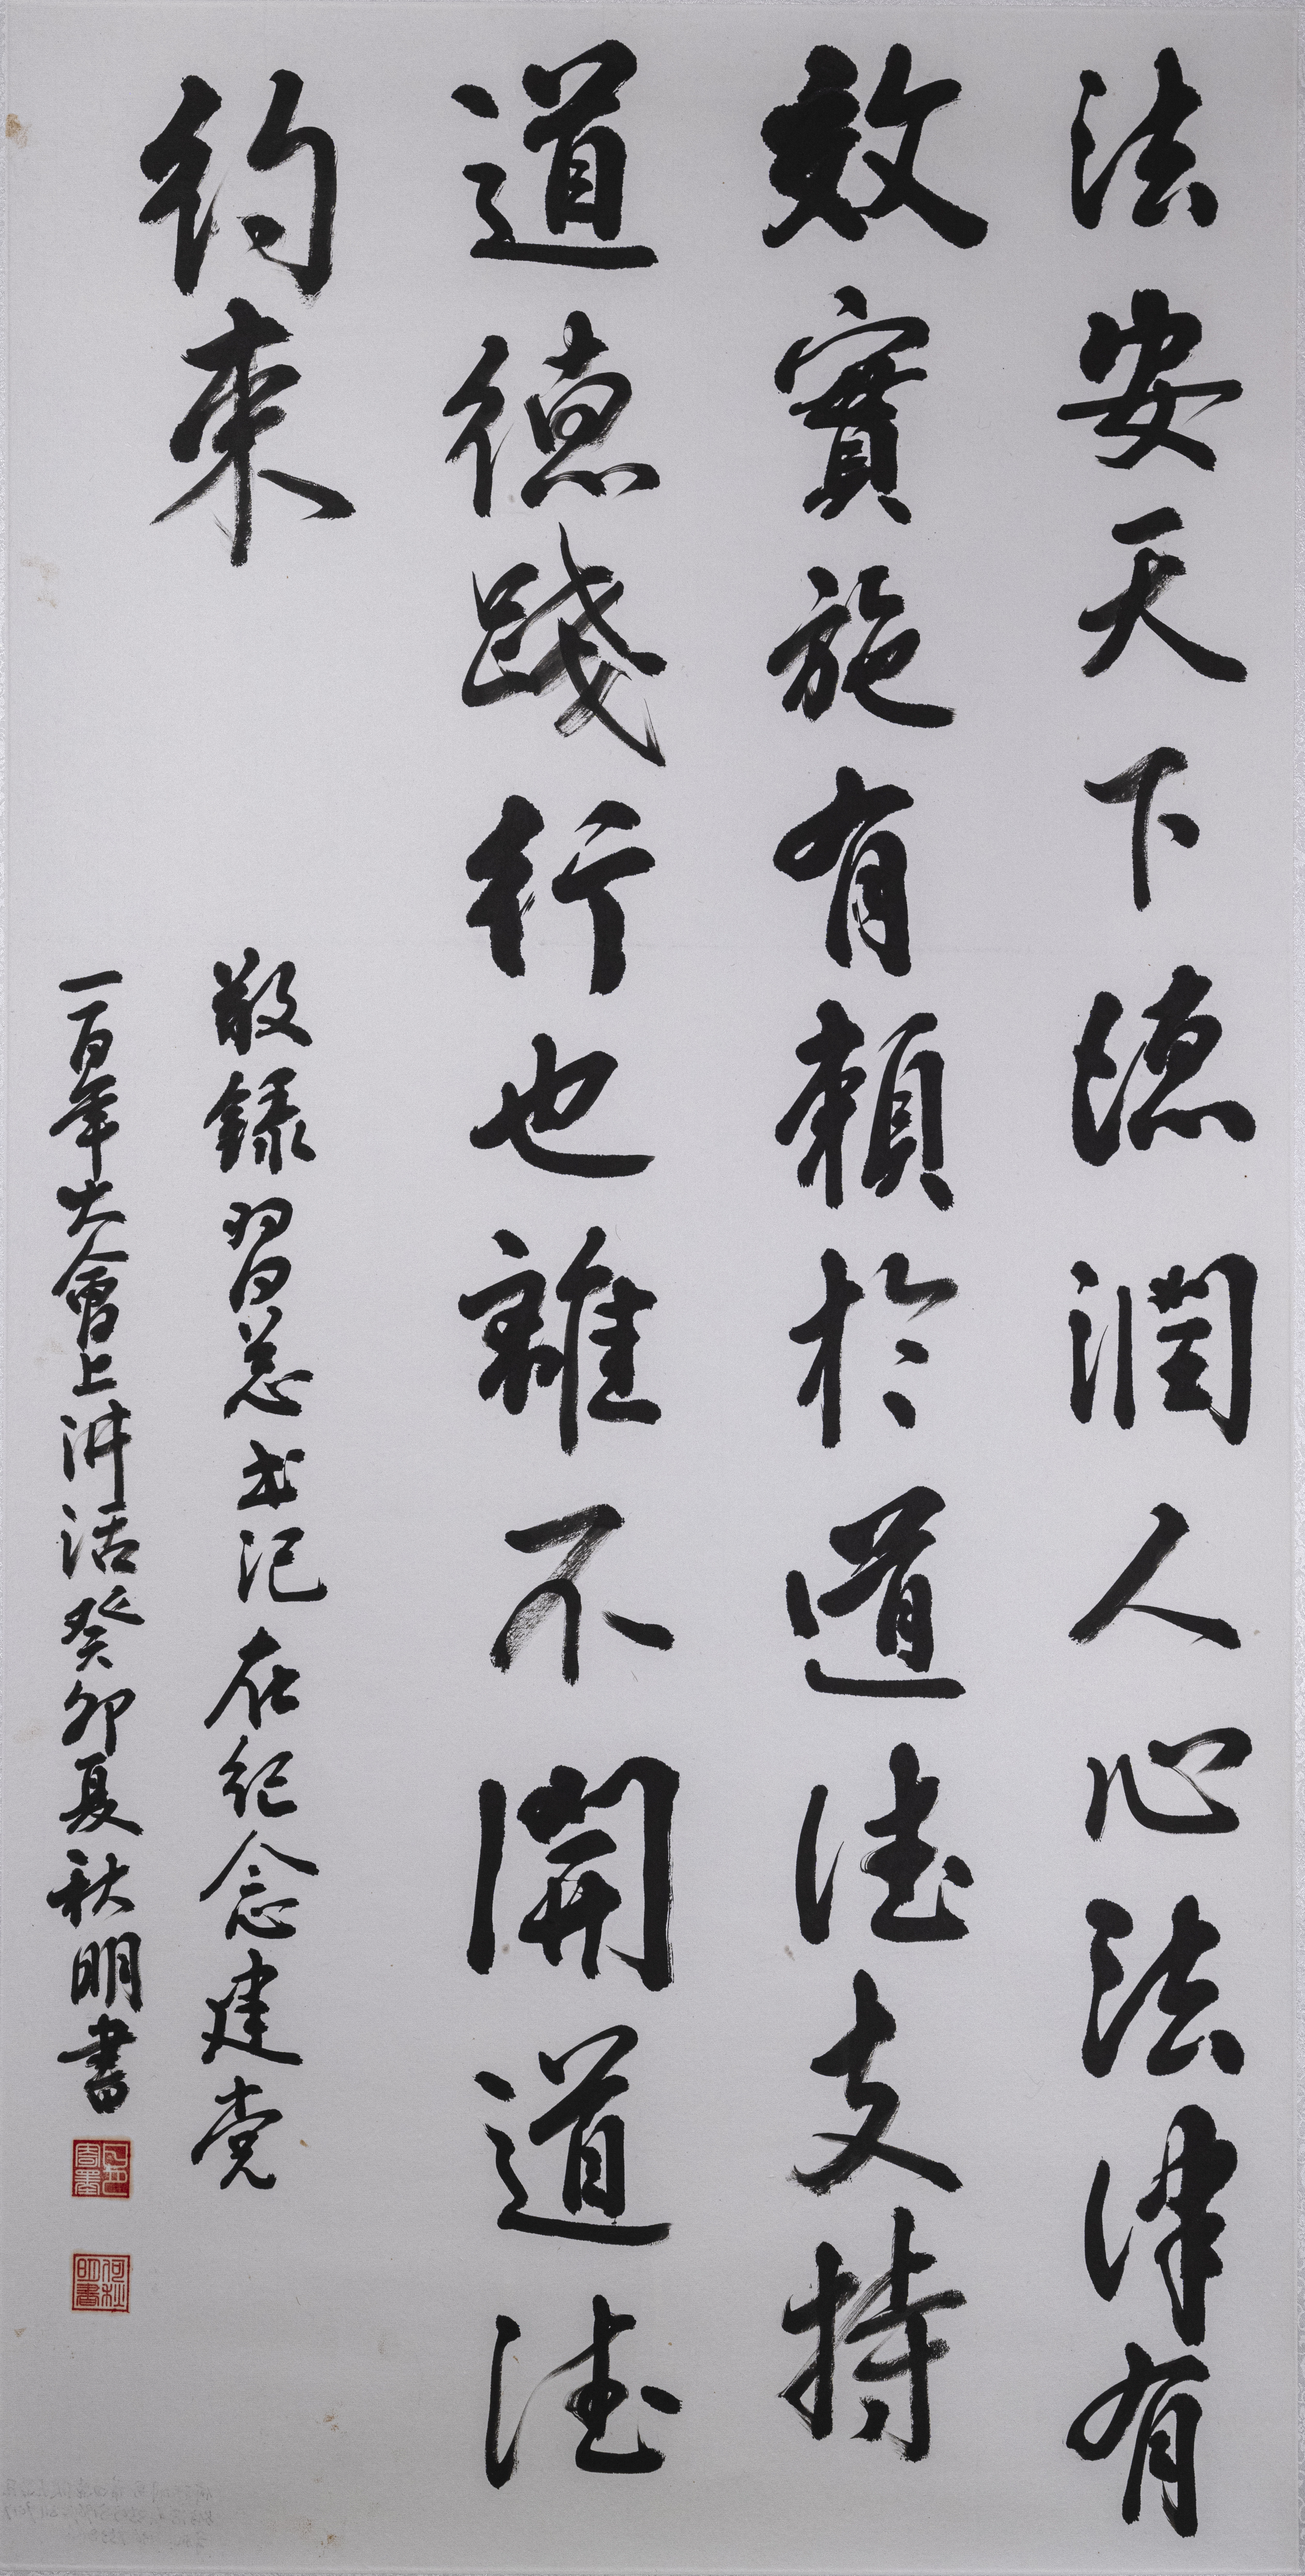 法安天下德潤人心法律有
效實施有賴於道德支持
道德踐行也離不開道德
約束
敬錄習总书记在纪念建党
一百年大會上讲话癸卯夏秋明書
何秋明書